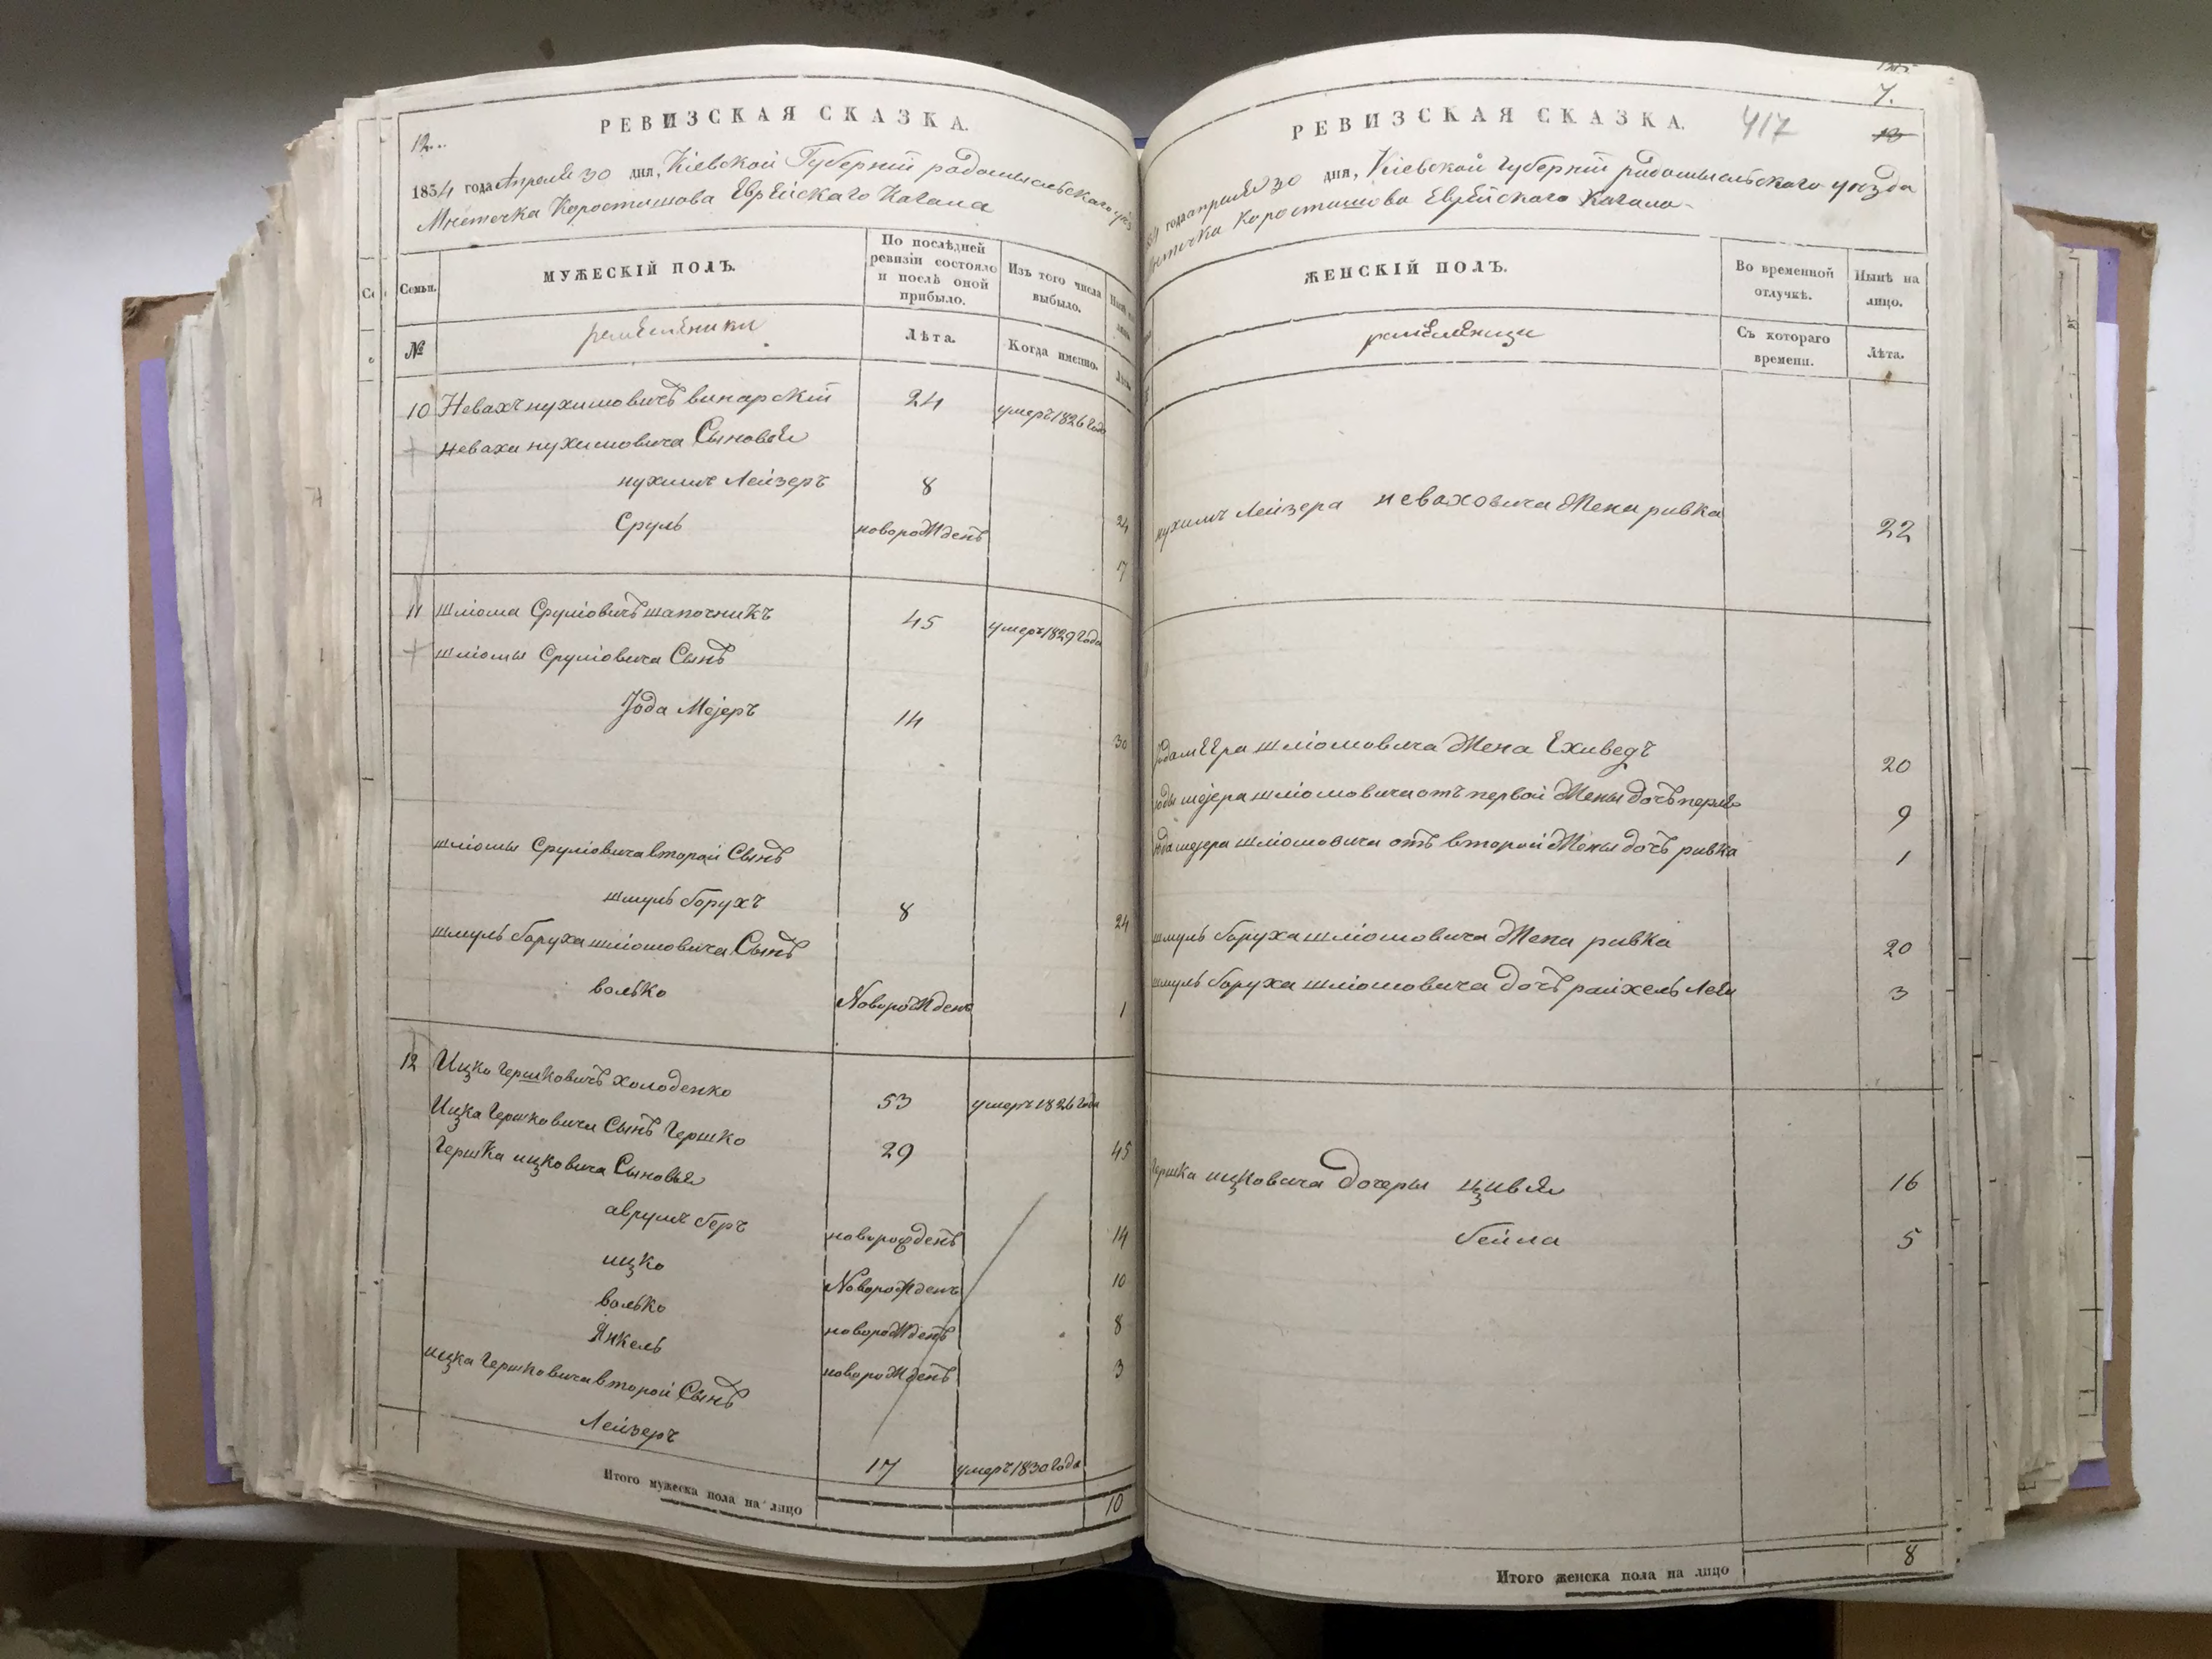 12..
РЕВИЗСКАЯ СКАЗКА.
1834 года Апреля 30 дня, Кіевской Губерніи радомысльского
Мѣстечка Коростишова Еврейскаго Кагала
Семьи.
МУЖЕСКІЙ ПОЛЪ.
По послѣдней ревизіи состояло и послѣ оной прибыло.
Изъ того числа выбыло.
№
ремеслѣники
Лѣта.
Когда именно.
10 Невахъ нухимовичъ винарскій 24 умеръ 1826 года
Неваха нухимовича Сыновья
нухимъ Лейзеръ 8 24
Сруль новорожденъ 7
11 шліома Сруліовичъ шапочникъ 45 умеръ 1829 года
шліомы Сруліовича Сынъ
Іода Меjеръ 14 30
шліомы Сруліовича второй Сынъ
шмуль борухъ 8 24
шмуль боруха шліомовича Сынъ
волько Новорожденъ 1
12 Ицко Гершковичъ холоденко 53 умеръ 1826 года
Ицка Гершковича Сынъ Гершко 29 45
Гершка ицковича Сыновья
аврумъ беръ новорожденъ 14
ицко Новорожденъ 10
волько новорожденъ 8
Янкель новорожденъ 3
ицка Гершковича второй Сынъ
Лейзеръ 17 умеръ 1830 года
Итого мужеска пола на лицо 10
7.
РЕВИЗСКАЯ СКАЗКА. 417
года апреля 30 дня, Кіевской Губерніи радомысльского уезда
Коростишова Еврейскаго Кагала
ЖЕНСКІЙ ПОЛЪ.
Во временной отлучкѣ.
Нынѣ на лицо.
ремеслѣници
Съ котораго времени.
Лѣта.
нухимъ Лейзера неваховича Жена ривка 22
шліомовича Жена Ехиведъ 20
меjера шліомовича отъ первой Жены дочъ перля 9
меjера шліомовича отъ второй Жены дочъ ривка 1
шмуль боруха шліомовича Жена ривка 20
шмуль боруха шліомовича дочъ райхель Леи 3
Гершка ицковича дочеры цивья 16
бейла 5
Итого женска пола на лицо 8